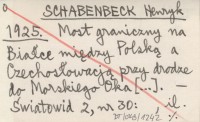 SCHABENBECK Henryk
1925. Most graniczny na
Białce między Polską a
Czechosłowacją przy drodze
do Morskiego Oka [...]. –
Światowid 2, nr 30: il.